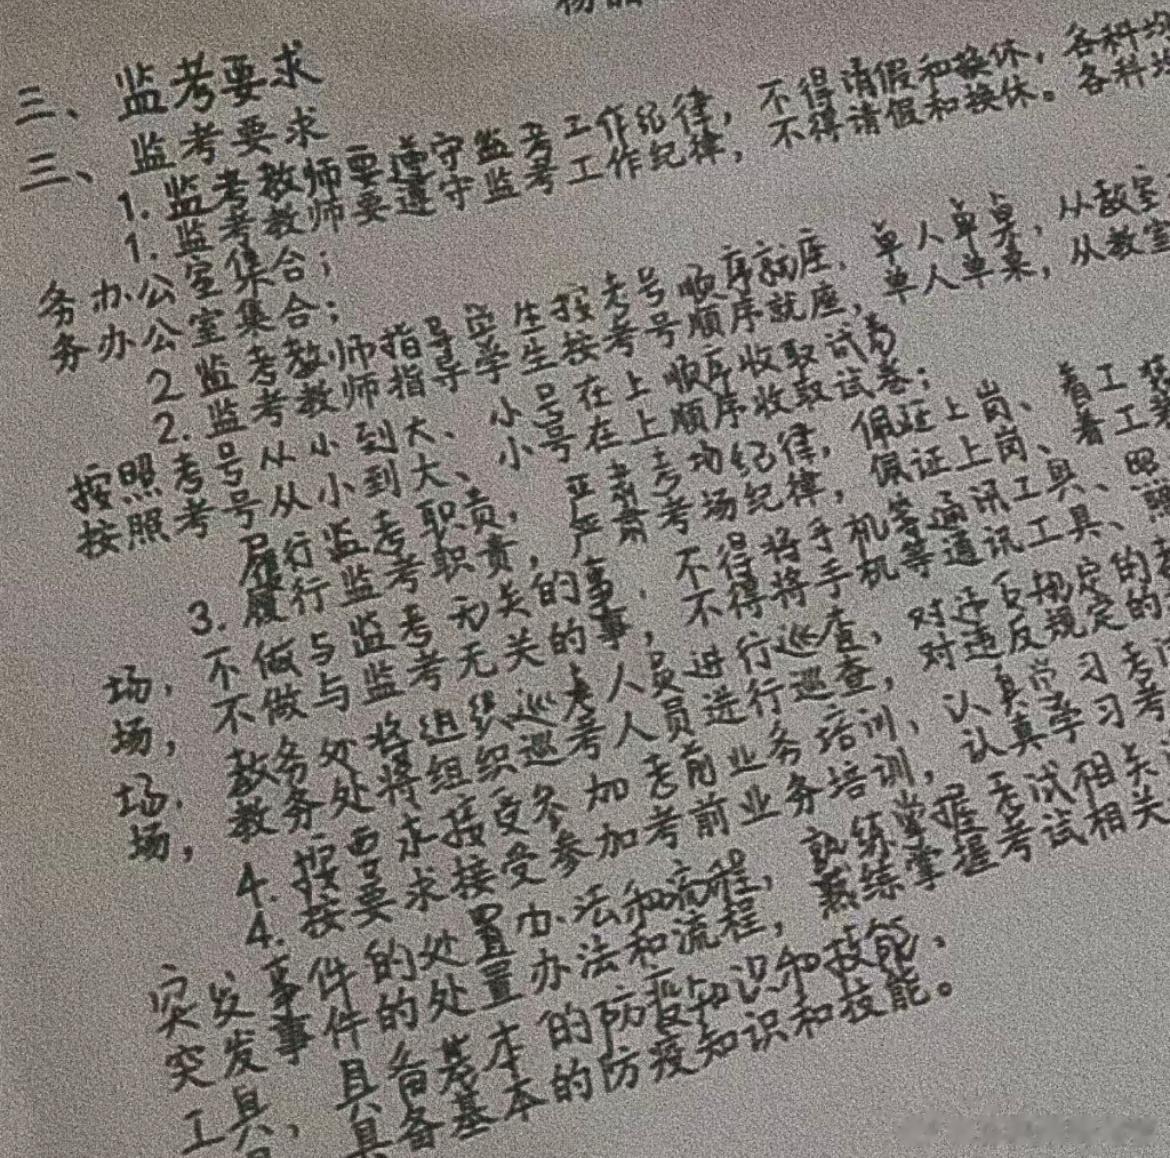 三、监考要求
三、监考要求
1. 监考教师要遵守监考工作纪律,不得请假和换休,各科均
1. 监考教师要遵守监考工作纪律,不得请假和换休。各科均
务办公室集合;
务办公室集合;
2 监考教师指导学生按考号顺序就座,单人单桌,从教室
2. 监考教师指导学生按考号顺序就座,单人单桌,从教室
按照考号从小到大、小号在上顺序收取试卷
按照考号从小到大、小号在上顺序收取试卷;
履行监考职责,严肃考场纪律,佩证上岗、着工装
3. 履行监考职责,严肃考场纪律,佩证上岗、着工装
场,不做与监考无关的事,不得将手机等通讯工具、照
场,不做与监考无关的事,不得将手机等通讯工具、照
场,教务处将组织巡考人员进行巡查,对违反规定的
场,教务处将组织巡考人员进行巡查,对违反规定的
4. 按要求接受参加考前业务培训,认真学习考
4. 按要求接受参加考前业务培训,认真学习考
突发事件的处置办法和流程,熟练掌握考试相关
突发事件的处置办法和流程,熟练掌握考试相关
工具,具备基本的防疫知识和技能、
具备基本的防疫知识和技能。